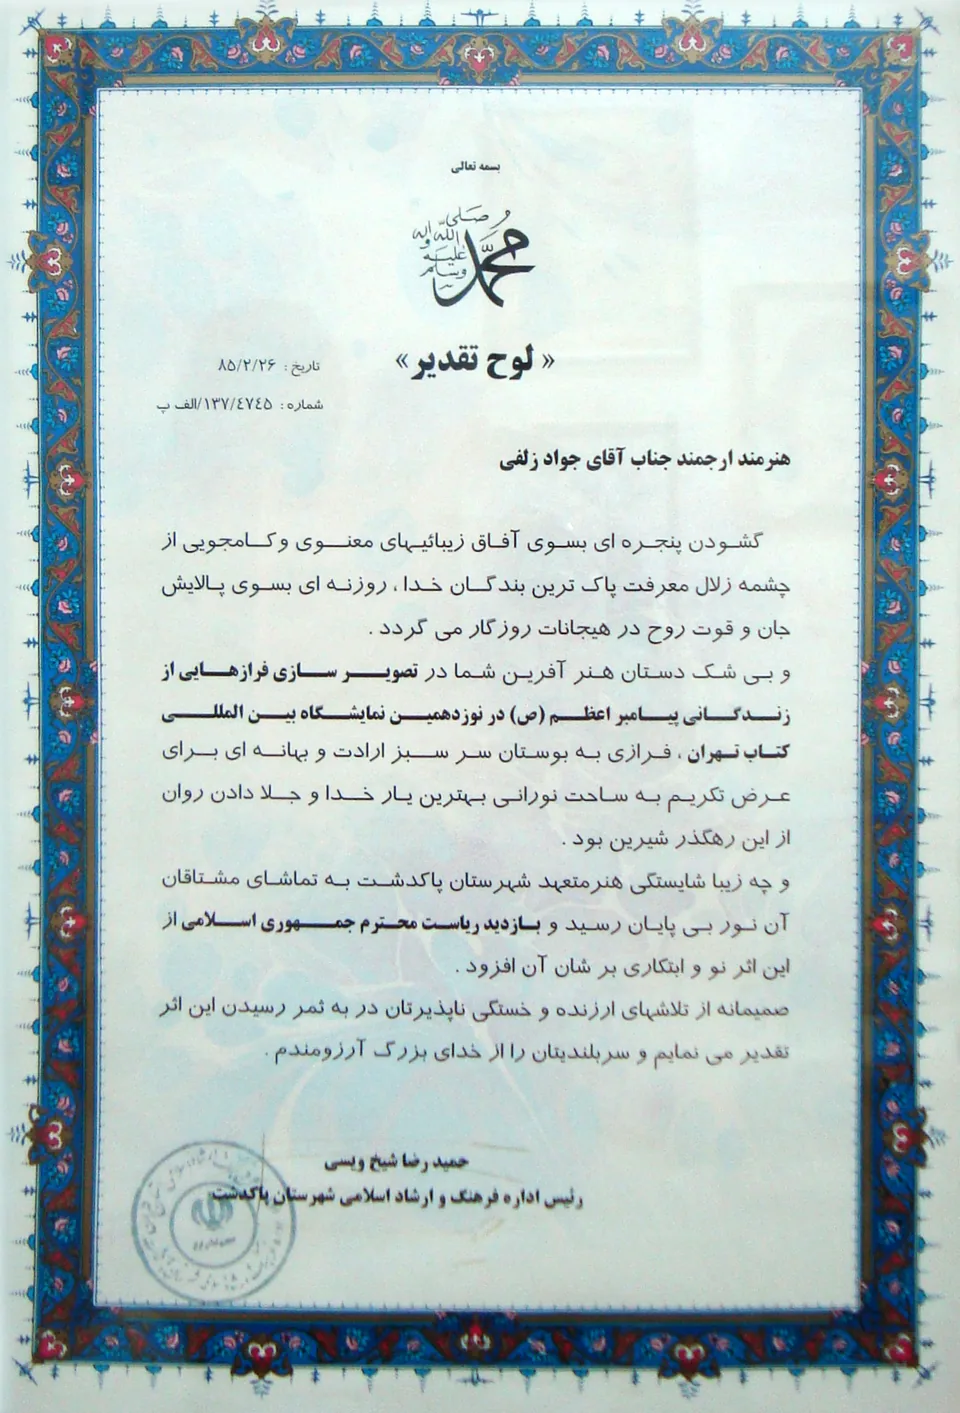 بسمه تعالی
محمد صلی الله علیه و اله وسلم
« لوح تقدیر»
تاریخ : ۸۵/۲/۲۶
شماره : ۱۳۷/٤٧٤٥/الف پ
هنرمند ارجمند جناب آقای جواد زلفی
گشودن پنجره ای بسوی آفاق زیبائیهای معنوی و کامجویی از
چشمه زلال معرفت پاک ترین بندگان خدا ، روزنه ای بسوی پالایش
جان و قوت روح در هیجانات روزگار می گردد .
و بی شک دستان هنر آفرین شما در تصویر سازی فرازهایی از
زندگانی پیامبر اعظم (ص) در نوزدهمین نمایشگاه بین المللی
کتاب تهران ، فرازی به بوستان سر سبز ارادت و بهانه ای برای
عرض تکریم به ساحت نورانی بهترین یار خدا و جلا دادن روان
از این رهگذر شیرین بود .
و چه زیبا شایستگی هنرمتعهد شهرستان پاکدشت به تماشای مشتاقان
آن نور بی پایان رسید و بازدید ریاست محترم جمهوری اسلامی از
این اثر نو و ابتکاری بر شان آن افزود .
صمیمانه از تلاشهای ارزنده و خستگی ناپذیرتان در به ثمر رسیدن این اثر
تقدیر می نمایم و سربلندیتان را از خدای بزرگ آرزومندم .
حمید رضا شیخ ویسی
رئیس اداره فرهنگ و ارشاد اسلامی شهرستان پاکدشت